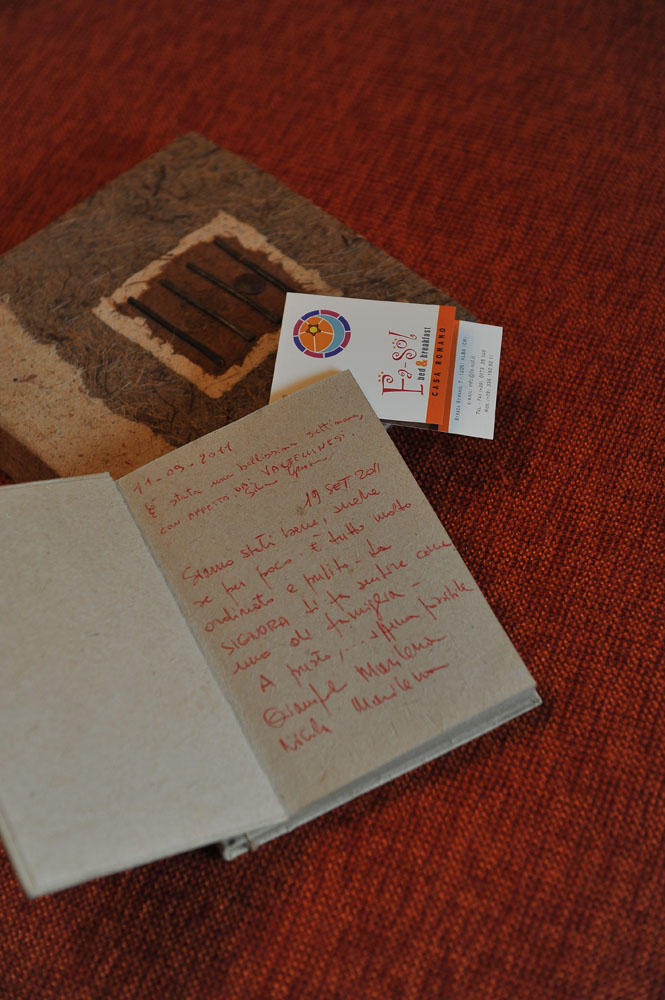 Fa-Sol
bed & breakfast
CASA ROMANO
11-09-2011
È stata una bellissima settimana,
CON AFFETTO DAI VALTELLINESI.
19 SET 2011
Siamo stati bene, anche
se per poco. È tutto molto
ordinato e pulito - La
SIGNORA ti fa sentire come
uno di famiglia -
A presto,... appena possibile
Marilena